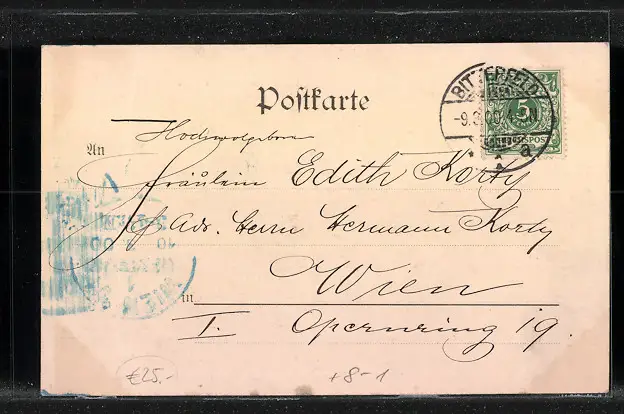 Postkarte
BITTERFELD
-9.3.00.
a
5
REICHSPOST
Hochwohlgeboren
An
Fräulein Edith Korty
p. Adr. Herrn Hermann Korty
Wien
in
I. Opernring 19.
€25.-
+8-1